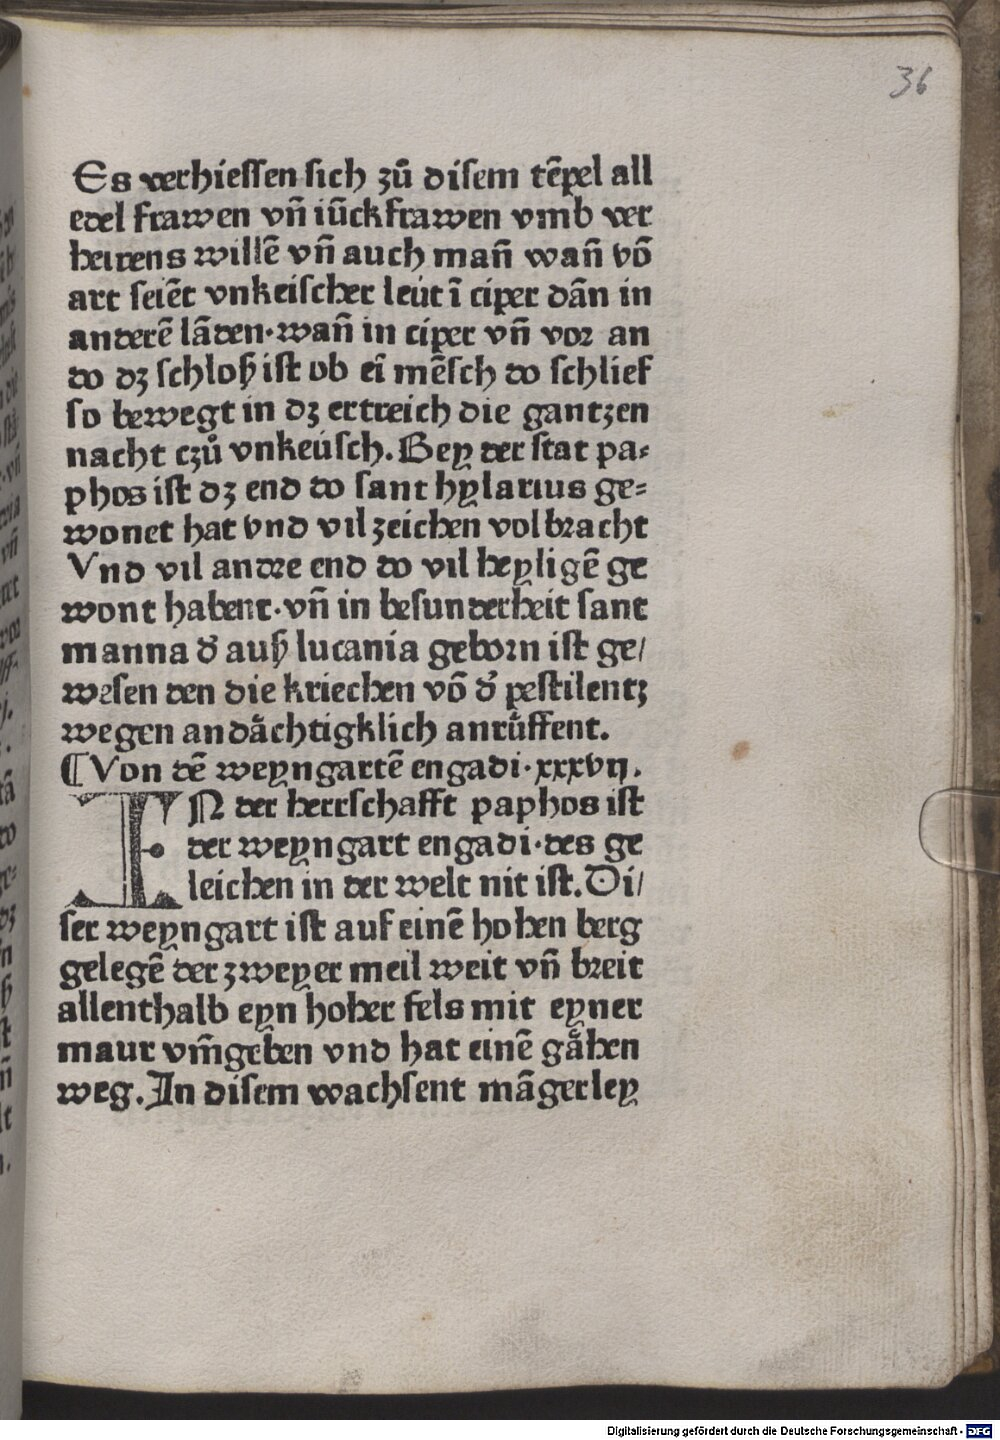 36
Es verhieſſen ſich zů diſem tēpel all
edel frawen vñ iūckfrawen vmb ver
heirens willē vñ auch mañ wañ vō
art ſeiēt vnkeiſcher leüt ī ciper dān in
anderē lāden·wañ in ciper vñ vor an
do dʒ ſchloß iſt ob eī mēſch do ſchlief
ſo bewegt in dʒ ertreich die gantzen
nacht czů vnkeüſch. Bey der ſtat pa⸗
phos iſt dʒ end do ſant hylarius ge⸗
wonet hat vnd vil zeichen volbracht
Vnd vil andre end do vil heyligē ge
wont habent·vñ in beſunderheit ſant
manna d̕ auß lucania geborn iſt ge/
weſen den die kriechen vō d̕ peſtilentz
wegen andåchtigklich anrůffent.
¶Von dē weyngartē engadi·xxxvij.
IN der herrſchafft paphos iſt
der weyngart engadi·des ge
leichen in der welt nit iſt. Di/
ſer weyngart iſt auf einē hohen berg
gelegē der zweyer meil weit vñ breit
allenthalb eyn hoher fels mit eyner
maur vm̄geben vnd hat einē gåhen
weg. In diſem wachſent māgerley
Digitalisierung gefördert durch die Deutsche Forschungsgemeinschaft - DFG